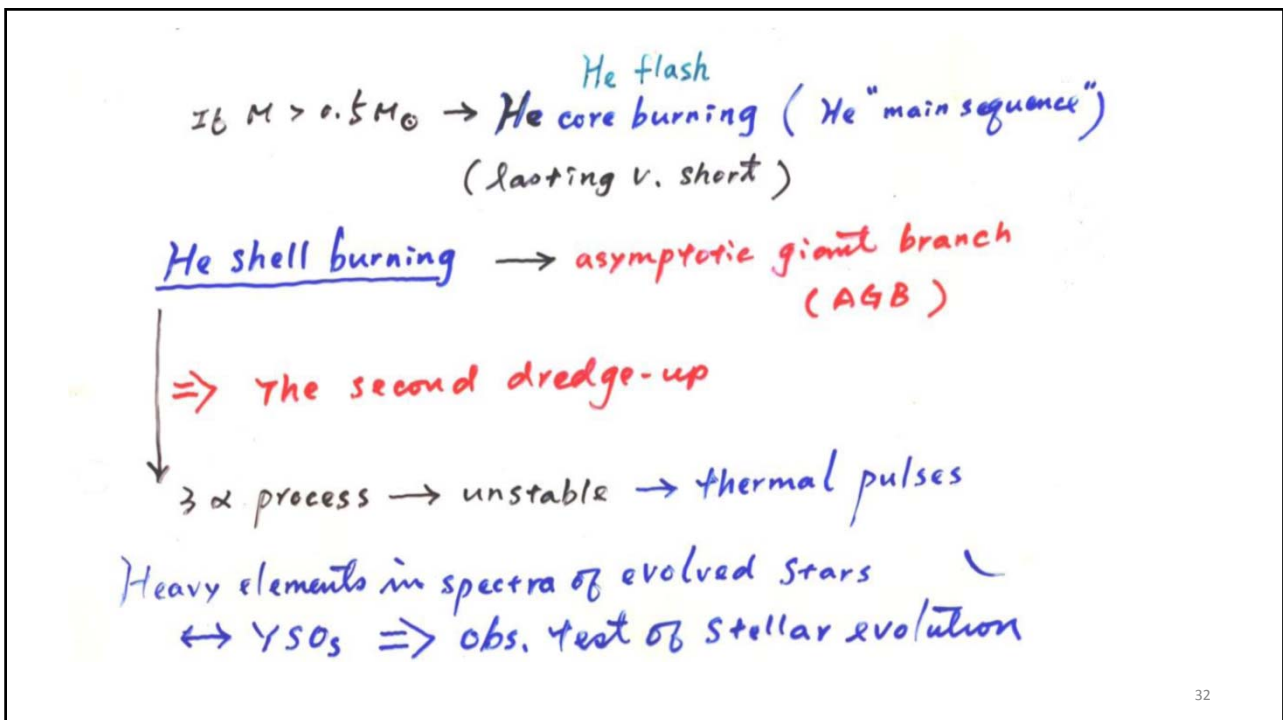 He flash
If M > 0.5 M⊙ → He core burning ( He "main sequence")
(lasting v. short)
He shell burning → asymptotic giant branch
(AGB)
=> The second dredge-up
3 α process → unstable → thermal pulses
Heavy elements in spectra of evolved stars
↔ YSOs => obs. test of stellar evolution
32